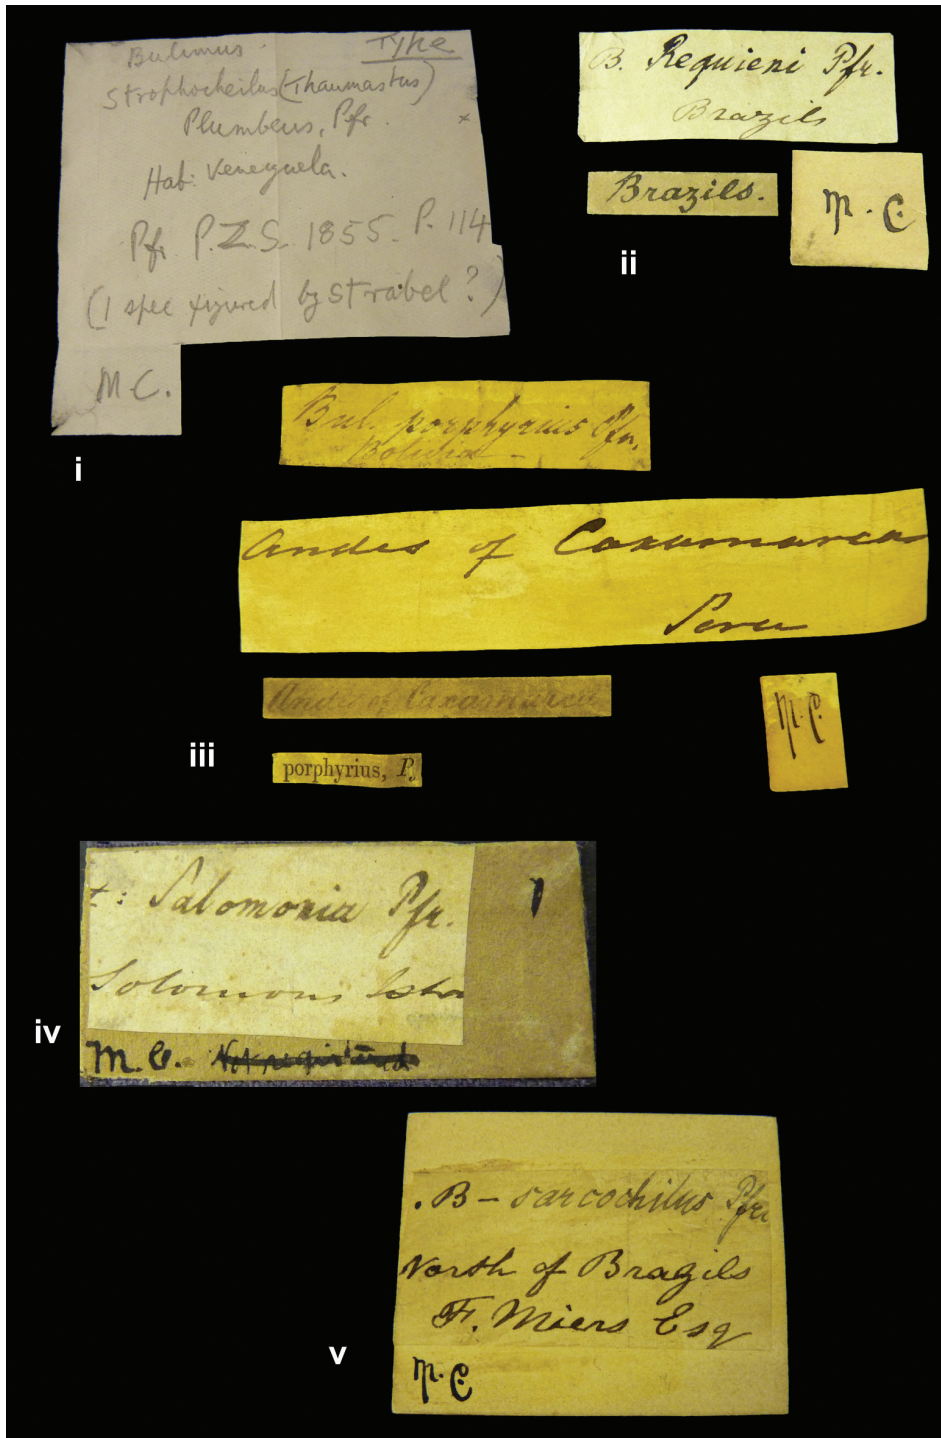 Type
Bulimus
Strophocheilus (Thaumastus)
Plumbeus, Pfr. x
Hab: Venezuela.
Pfr P.Z.S. 1855. P. 114
(1 spec figured by Strabel ?)
M.C.
i
B. Requieni Pfr.
Brazils
Brazils.
M. C.
ii
Bul. porphyrius Pfr.
Bolivia
Andes of Caxamarca
Peru
Andes of Caxamarca
M. C.
iii
porphyrius, P.
: Salomonia Pfr.
Solomons
M. C. Not registered
iv
. B - sarcochilus Pfr.
North of Brazils
F. Miers Esq
v
M. C.